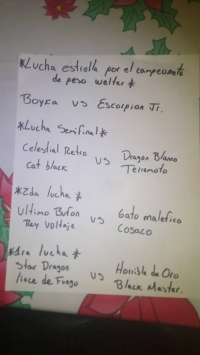 *Lucha estrella por el campeonato
de peso welter*
Boyka vs Escorpion Jr.
*Lucha Semifinal*
Celestial Retro vs Dragon Blanco
Cat black Terremoto
*2da lucha*
Ultimo Bufon vs Gato malefico
Rey Voltaje Cosaco
*1ra lucha*
Star Dragon vs Horrible de Oro
Lince de Fuego Black Master.